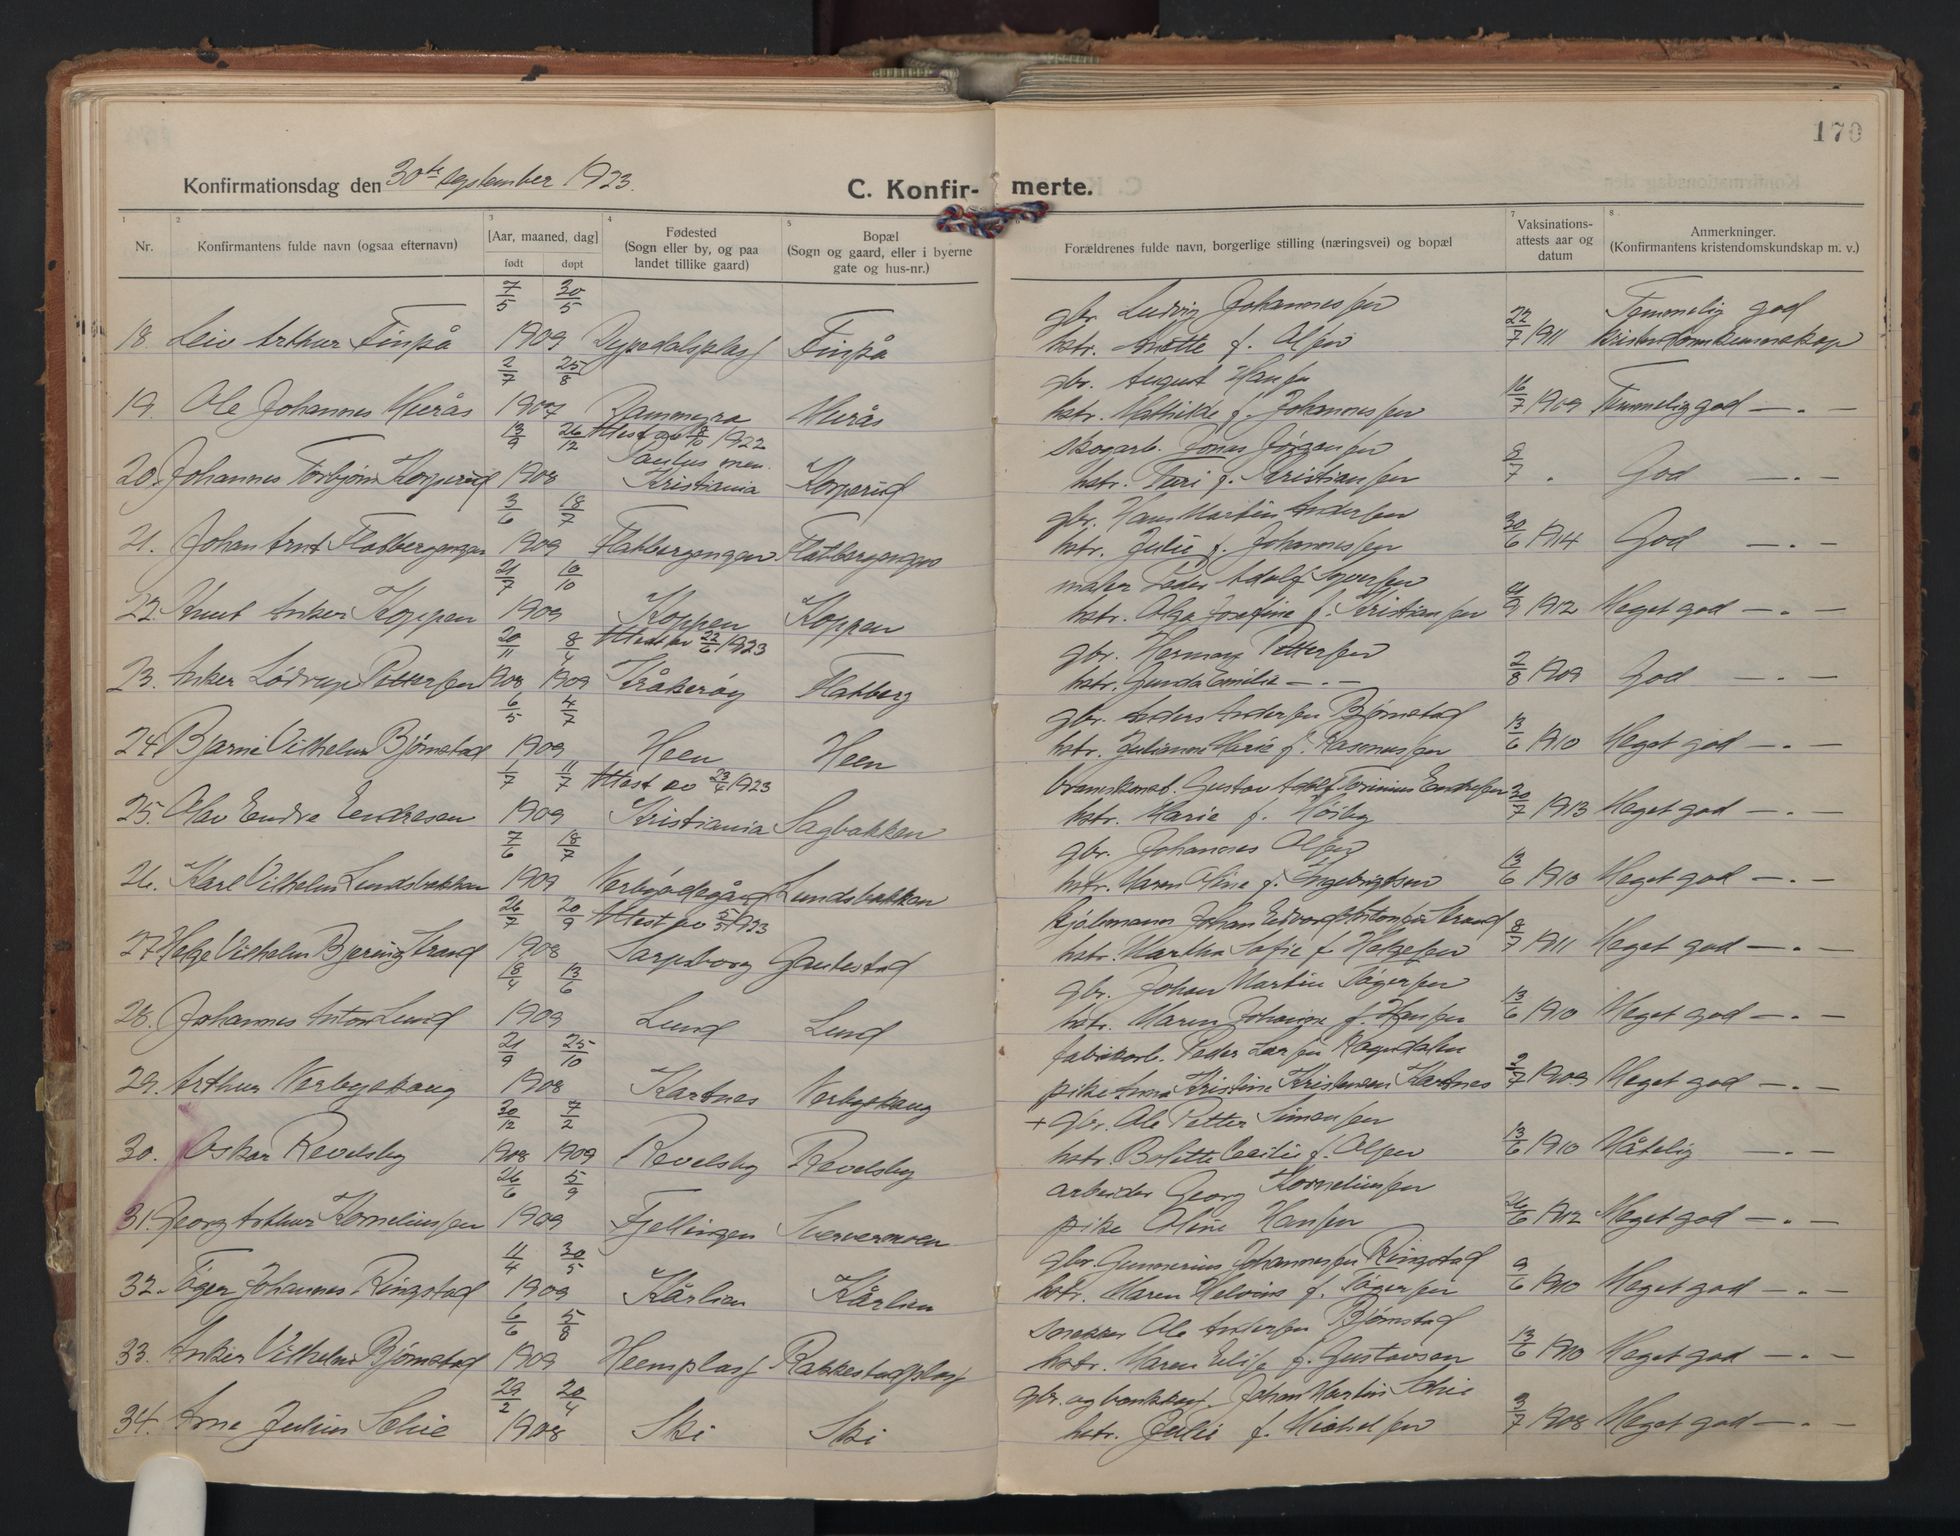 170
Konfirmationsdag den 30te september 1923.
C. Konfirmerte.
1 2 3 4 5 6 7 8
Nr.
Konfirmantens fulde navn (ogsaa efternavn)
[Aar, maaned, dag]
født døpt
Fødested
(Sogn eller by, og paa
landet tillike gaard)
Bopæl
(Sogn og gaard, eller i byerne
gate og hus-nr.)
Forældrenes fulde navn, borgerlige stilling (næringsvei) og bopæl
Vaksinations-
attests aar og
datum
Anmerkninger.
(Konfirmantens kristendomskundskap m. v.)
7/5 30/5 gbr. Ludvig Johannessen Temmelig god
18. Leiv Arthur Finpå 1909 Finpå hstr. Anette f. Olsen 22/7 1911 kristendomskunnskap
2/7 25/8 gbr. August Hansen
19. Ole Johannes Hurås 1907 Hurås hstr. Mathilde f. Johannessen 16/7 1909 Temmelig god — . —
13/9 26/12 Attest av 8/10 1922 skogarb. Jonas Jørgensen
20. Johannes Torbjørn Korperud 1908 Paulus men. Kristiania Korperud hstr. Kari f. Kristiansen God — . —
3/6 18/7 gbr. Hans Martin Andersen
21. Johan Arnt Flatbergengen 1909 Flatbergengen Flatbergengen hstr. Julie f. Johannessen 30/6 1914 God — . —
21/7 10/10 maler Peder Adolf Syversen
22. Knut Anker Koppen 1909 Koppen Koppen hstr. Olga Josefine f. Kristiansen 1912 Meget god — . —
20/11 8/4 Attest av 22/6 1923 gbr. Herman Pettersen
23. Anker Lødrup Pettersen 1908 1909 Kråkerøy Flatberg hstr. Gunda Emilie — . — 2/8 1909 God — . —
6/5 4/7 gbr. Anders Andersen Bjørnstad
24. Bjarne Vilhelm Bjørnstad 1909 Heen Heen hstr. Julianne Marie f. Rasmussen 13/6 1910 Meget god — . —
1/7 11/7 Attest av 23/4 1923 Gustav Adolf Endresen
25. Olav Endre Endresen 1909 Kristiania Sagbakken hstr. Marie f. Høiby 30/7 1913 Meget god — . —
7/6 18/7 gbr. Johannes Olsen
26. Karl Vilhelm Lundsbakken 1909 Lundsbakken hstr. Maren Oline f. Engebrigtsen 13/6 1910 Meget god — . —
26/7 20/9 Attest av 5/5 1923 Johan Edvard Antonsen Strand
27. Helge Vilhelm Bjering Strand 1908 Sarpsborg Gautestad hstr. Martha Sofie f. Helgesen 8/7 1911 Meget god — . —
18/4 13/6 gbr. Johan Martin Tøgersen
28. Johannes Anton Lund 1909 Lund Lund hstr. Maren Johanne f. Hansen 13/6 1910 Meget god — . —
21/9 25/10 fabrikarb. Peder Larsen
29. Arthur Verbyskaug 1908 Kartnes Verbyskaug pike Anna Kristine Kristensen Kartnes 2/7 1909 Meget god — . —
30/12 7/2 + gbr. Ole Petter Simensen
30. Oskar Revelsby 1908 1909 Revelsby Revelsby hstr. Bolette Cecilie f. Olsen 13/6 1910 Måtelig — . —
26/6 5/9 arbeider Georg Korneliussen
31. Georg Arthur Korneliussen 1909 Fjellingen Sververmoen pike Oline Hansen 26/6 1912 Meget god — . —
4/4 30/5 gbr. Gunnerius Johannessen Ringstad
32. Tøger Johannes Ringstad 1909 Kårlien Kårlien hstr. Maren Helvine f. Tøgersen 9/6 1910 Meget god — . —
6/6 5/8 snekker Ole Andersen Bjørnstad
33. Anker Vilhelm Bjørnstad 1909 Heenplass Rakkestadplass hstr. Maren Elise f. Gustavsen 13/6 1910 Meget god — . —
29/2 20/4 gbr. og bankkass. Johan Martin Schie
34. Arne Julius Schie 1908 Ski Ski hstr. Julie f. Michelsen 3/7 1908 Meget god — . —